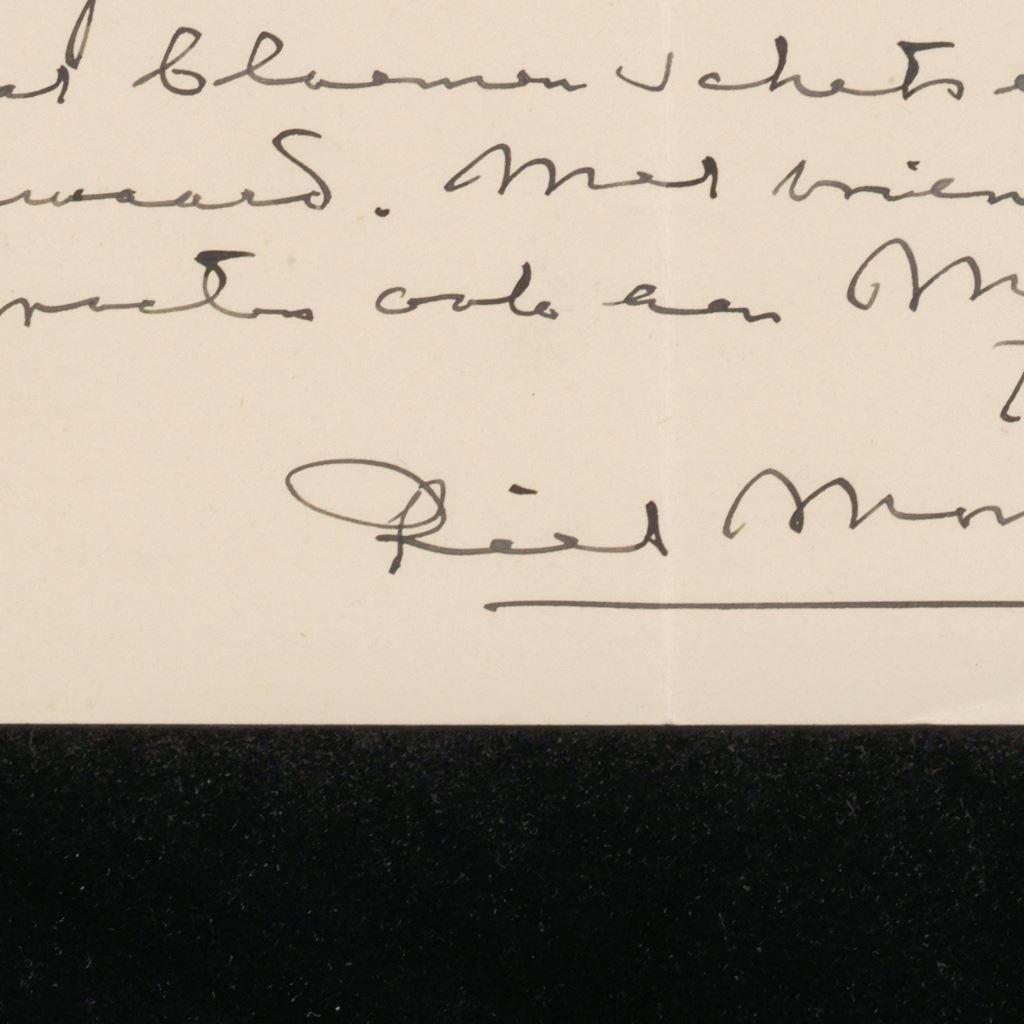 bloemen schets
waard. Met vrien
groeten ook aan M
T
Piet Mon